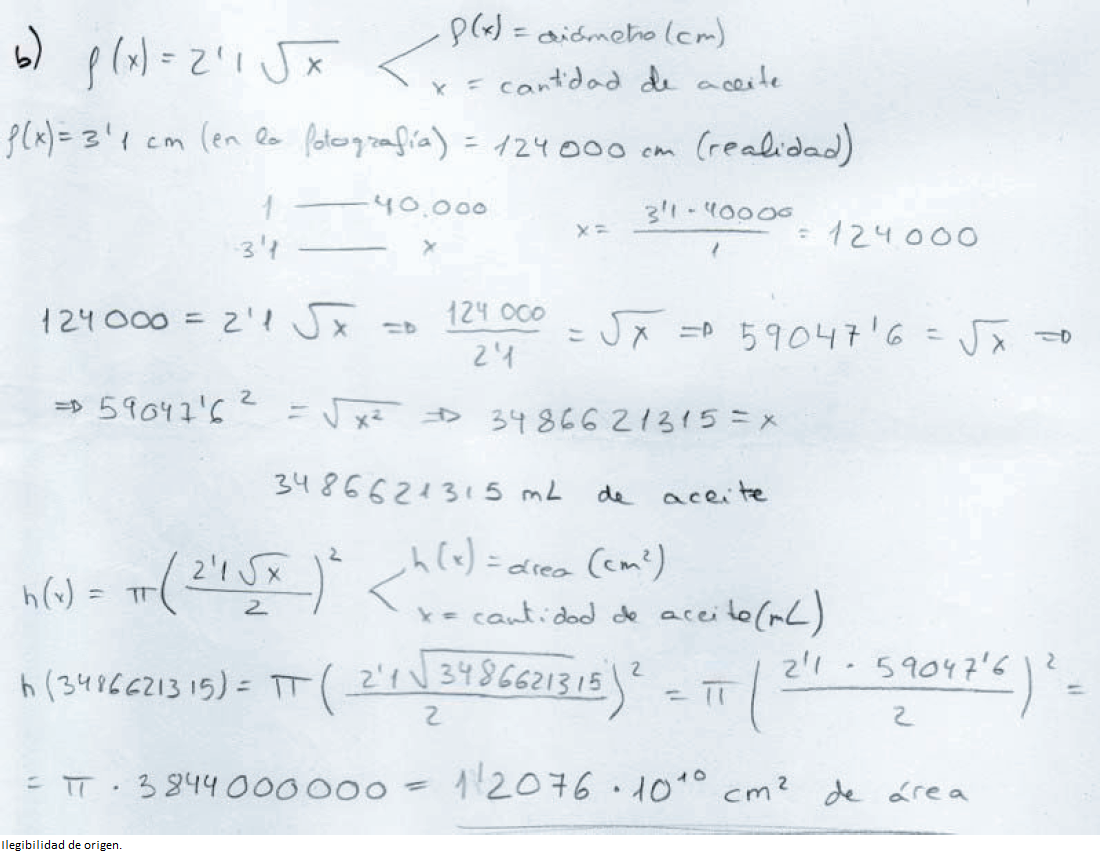 b) f(x) = 2'1 √x < f(x) = diámetro (cm)
x = cantidad de aceite
f(x) = 3'1 cm (en la fotografía) = 124000 cm (realidad)
1 —— 40.000 x = 3'1 · 40000 / 1 = 124000
3'1 —— x
124000 = 2'1 √x ⇒ 124000 / 2'1 = √x ⇒ 59047'6 = √x ⇒
⇒ 59047'6² = √x² ⇒ 3486621315 = x
3486621315 mL de aceite
h(x) = π (2'1√x / 2)² < h(x) = área (cm²)
x = cantidad de aceite (mL)
h(3486621315) = π (2'1√3486621315 / 2)² = π (2'1 · 59047'6 / 2)² =
= π · 3844000000 = 1'2076 · 10¹⁰ cm² de área
Ilegibilidad de origen.